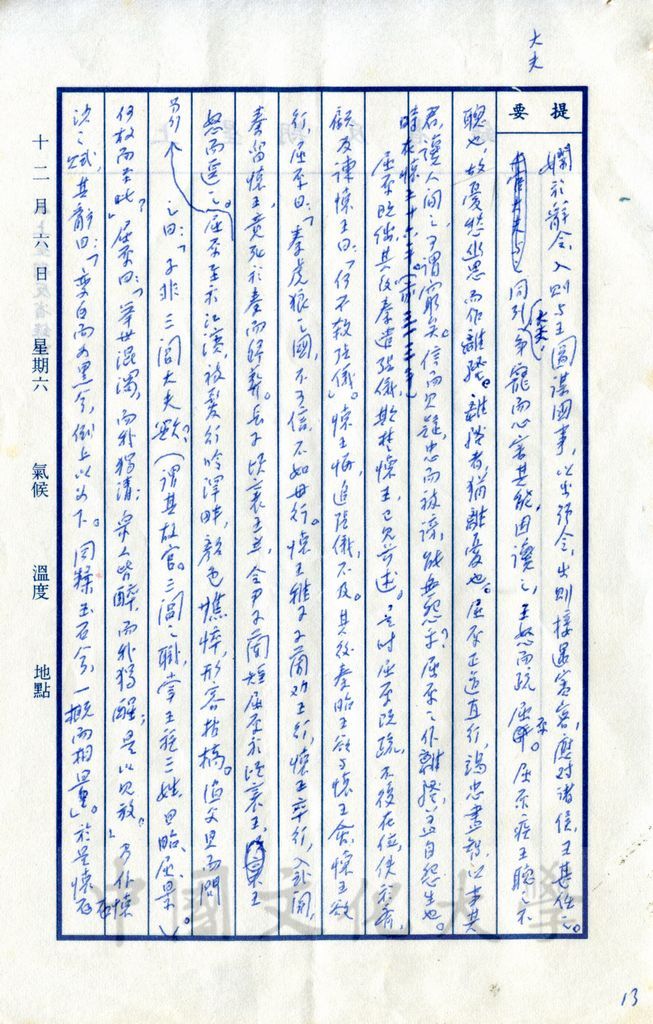 大夫
提要
嫻於辭令,入則與王圖謀國事,以出號令,出則接遇賓客,應對諸侯,王甚任之。
上官大夫與之同列,爭寵而心害其能,因讒之,王怒而疏屈平。屈原疾王聽之不
聰也,故憂愁幽思而作離騷。離騷者猶離憂也。屈原正道直行,竭忠盡智,以事其
君,讒人間之,可謂窮矣。信而見疑,忠而被謗,能無怨乎?屈原之作離騷,蓋自怨生也。
時在懷王十六年(前三一三年)
屈原既絀,其後秦遣張儀,欺楚懷王,已見前述。是時屈原既疏,不復在位,使於齊,
顧反諫懷王曰:「何不殺張儀」。懷王悔,追張儀,不及。其後秦昭王欲與懷王會,懷王欲
行,屈原曰:「秦虎狼之國,不可信,不如毋行。懷王稚子子蘭勸王行,懷王卒行,入武關,
秦留懷王,竟死於秦而歸葬。長子頃襄王立,令尹子蘭短屈原於頃襄王,王
怒而遷之。屈原至於江濱,被髮行吟澤畔,顏色憔悴,形容枯槁。漁父見而問
之曰:「子非三閭大夫歟?(謂其故官。三閭之職,掌王族三姓,曰昭、屈、景)。
何故而至此」?屈原曰:「舉世混濁,而我獨清;眾人皆醉,而我獨醒;是以見放。」乃作懷
沙之賦,其辭曰:「變白而為黑兮,倒上以為下。同糅玉石兮,一概而相量」。於是懷石
十二月六日 星期六 氣候 溫度 地點
中國文化大學
13